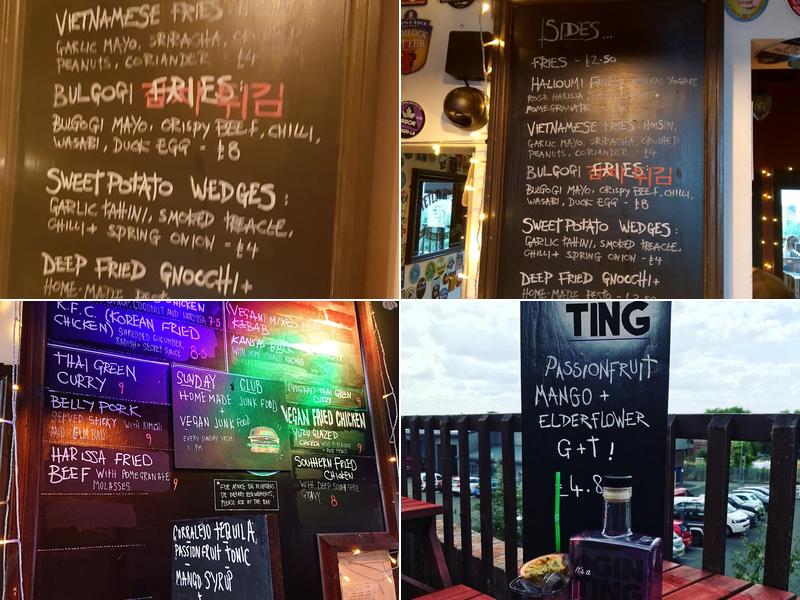 VIETNAMESE FRIES
GARLIC MAYO, SRIRACHA,
PEANUTS, CORIANDER - £4
BULGOGI FRIES:
BULGOGI MAYO, CRISPY BEEF, CHILLI,
WASABI, DUCK EGG - £8
SWEET POTATO WEDGES:
GARLIC TAHINI, SMOKED TREACLE,
CHILLI + SPRING ONION - £4
DEEP FRIED GNOCCHI +
HOME-MADE PESTO
SIDES...
FRIES - £2.50
HALLOUMI FRIES: YOGHURT,
ROSE HARISSA
POMEGRANATE - £4
VIETNAMESE FRIES: HOISIN,
GARLIC MAYO, SRIRACHA, CRUSHED
PEANUTS, CORIANDER - £4
BULGOGI FRIES:
BULGOGI MAYO, CRISPY BEEF, CHILLI,
WASABI, DUCK EGG - £8
SWEET POTATO WEDGES:
GARLIC TAHINI, SMOKED TREACLE,
CHILLI + SPRING ONION - £4
DEEP FRIED GNOCCHI +
HOME-MADE PESTO
CHICKEN
COCONUT AND HARISSA 7.5
K.F.C. (KOREAN FRIED
CHICKEN) SHREDDED CUCUMBER,
RADISH + SECRET SAUCE 8.5
THAI GREEN
CURRY 9
BELLY PORK
SERVED STICKY WITH KIMCHI
9
HARISSA FRIED
BEEF WITH POMEGRANATE
MOLASSES 9
SUNDAY CLUB
HOME MADE JUNK FOOD
+
VEGAN JUNK FOOD
EVERY SUNDAY FROM
1 PM
(VEGAN) MIXED
KEBAB
KANSAS
(VEGAN) THAI GREEN
CURRY 9
VEGAN FRIED CHICKEN
YUZU GLAZED
CHICKEN
9
SOUTHERN FRIED
CHICKEN
WITH DEEP SOUTH STYLE
GRAVY 8
PLEASE ASK AT THE BAR
CORRALEJO TEQUILA,
PASSIONFRUIT TONIC
MANGO SYRUP
+
TING
PASSIONFRUIT
MANGO +
ELDERFLOWER
G+T!
£4.8
It's a
GIN
TING